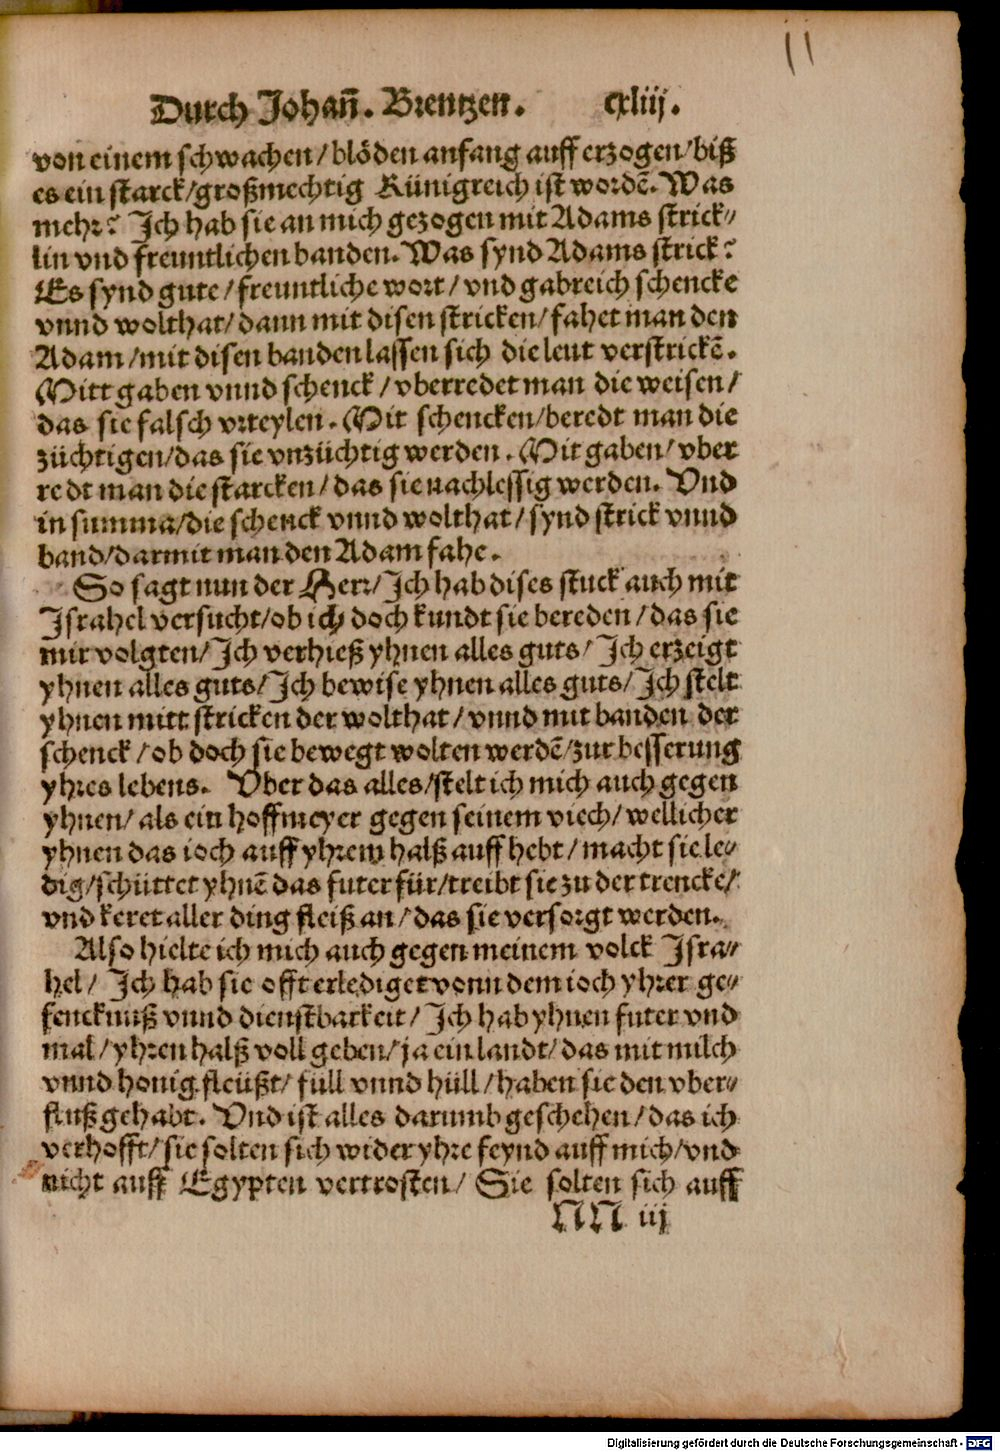 Durch Johañ. Brentzen. cxliij.
von einem schwachen/blöden anfang auff erzogen/biß
es ein starck/großmechtig Künigreich ist wordẽ. Was
mehr? Ich hab sie an mich gezogen mit Adams strick⸗
lin vnd freuntlichen banden. Was synd Adams strick?
Es synd gute/freuntliche wort/vnd gabreich schencke
vnnd wolthat/dann mit disen stricken/fahet man den
Adam/mit disen banden lassen sich die leut verstrickẽ.
Mitt gaben vnnd schenck/vberredet man die weisen/
das sie falsch vrteylen. Mit schencken/beredt man die
züchtigen/das sie vnzüchtig werden. Mit gaben/vber
redt man die starcken/das sie nachlessig werden. Vnd
in summa/die schenck vnnd wolthat/synd strick vnnd
band/darmit man den Adam fahe.
So sagt nun der Herr/Ich hab dises stuck auch mit
Israhel versucht/ob ich doch kundt sie bereden/das sie
mir volgten/Ich verhieß yhnen alles guts/Ich erzeigt
yhnen alles guts/Ich bewise yhnen alles guts/Ich stelt
yhnen mitt stricken der wolthat/vnnd mit banden der
schenck/ob doch sie bewegt wolten werdẽ/zur besserung
yhres lebens. Vber das alles/stelt ich mich auch gegen
yhnen/als ein hoffmeyer gegen seinem viech/wellicher
yhnen das ioch auff yhrem halß auff hebt/macht sie le⸗
dig/schüttet yhnẽ das futer für/treibt sie zu der trencke/
vnd keret aller ding fleiß an/das sie versorgt werden.
Also hielte ich mich auch gegen meinem volck Isra⸗
hel/Ich hab sie offt erlediget vonn dem ioch yhrer ge⸗
fencknuß vnnd dienstbarkeit/Ich hab yhnen futer vnd
mal/yhren halß voll geben/ja ein landt/das mit milch
vnnd honig fleüßt/füll vnnd hüll/haben sie den vber⸗
fluß gehabt. Vnd ist alles darumb geschehen/das ich
verhofft/sie solten sich wider yhre feynd auff mich/vnd
nicht auff Egypten vertrosten/Sie solten sich auff
NN iij
Digitalisierung gefördert durch die Deutsche Forschungsgemeinschaft - DFG